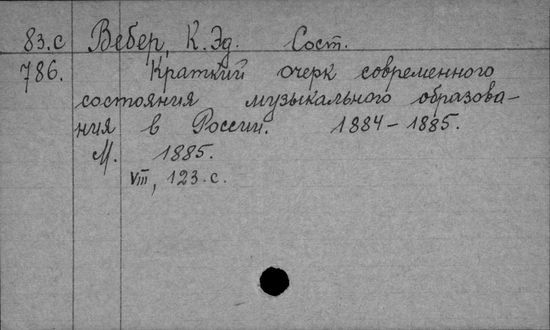 83.c Вебер, К. Эд. Сост.
786. Краткий очерк современного
состояния музыкального образова-
ния в России. 1884-1885.
М. 1885.
VIII, 123.с.